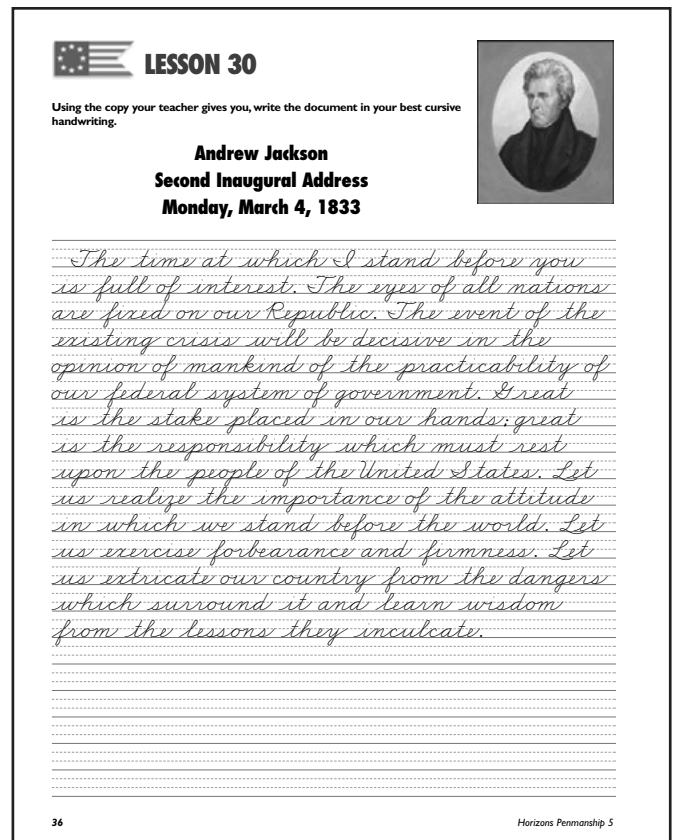 LESSON 30
Using the copy your teacher gives you, write the document in your best cursive
handwriting.
Andrew Jackson
Second Inaugural Address
Monday, March 4, 1833
The time at which I stand before you
is full of interest. The eyes of all nations
are fixed on our Republic. The event of the
existing crisis will be decisive in the
opinion of mankind of the practicability of
our federal system of government. Great
is the stake placed in our hands; great
is the responsibility which must rest
upon the people of the United States. Let
us realize the importance of the attitude
in which we stand before the world. Let
us exercise forbearance and firmness. Let
us extricate our country from the dangers
which surround it and learn wisdom
from the lessons they inculcate.
36
Horizons Penmanship 5